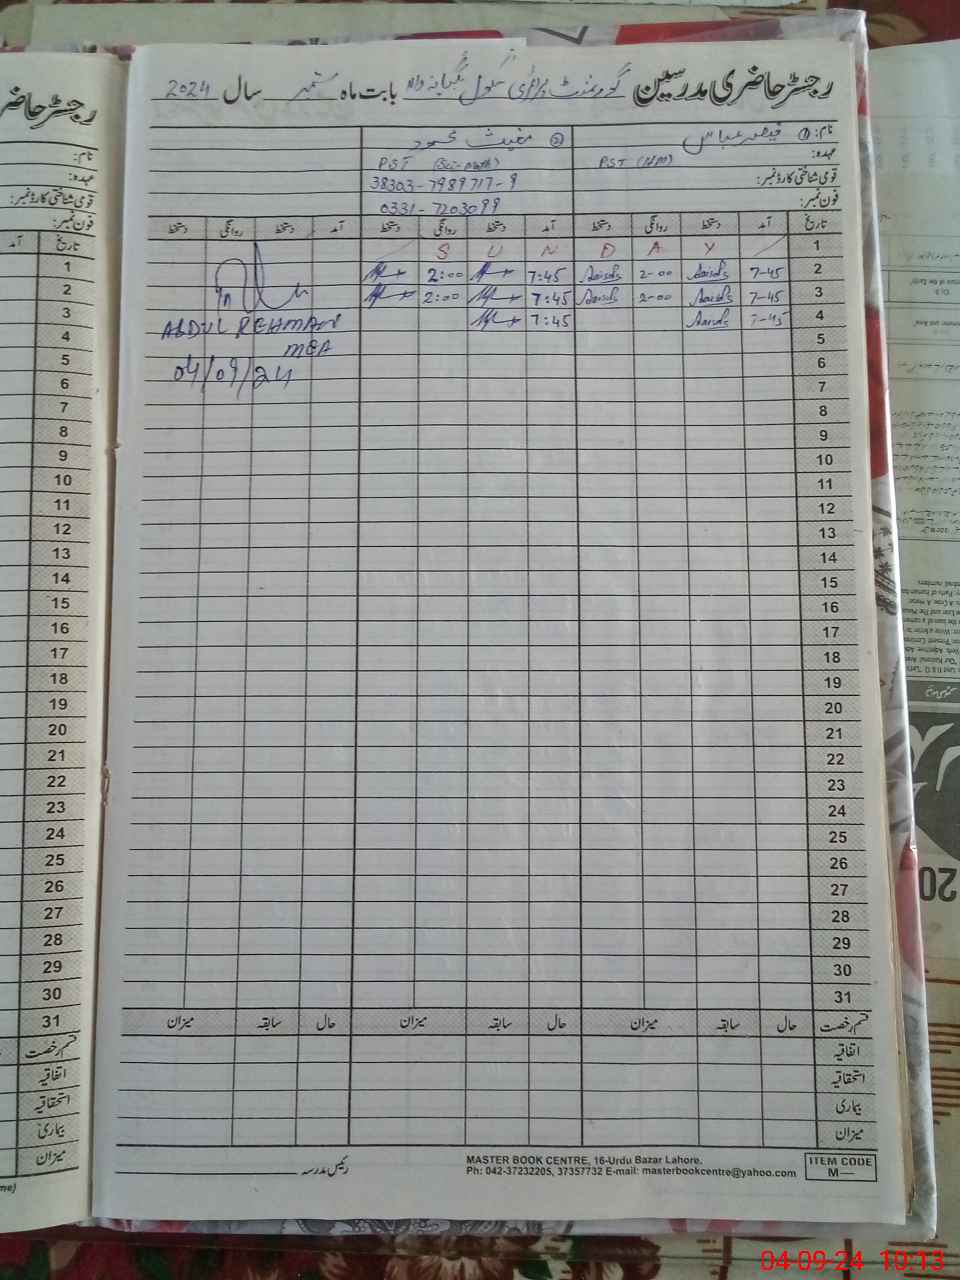 رجسٹر حاضری مدرسین گورنمنٹ پرائمری سکول بابت ماہ ستمبر سال 2024
نام: ① قیصر عباس ② مغیث محمود
عہدہ: PST (NM) PST (Sci-math)
قومی شناختی کارڈ نمبر: 38303-7989717-9
فون نمبر: 0331-7203099
تاریخ آمد دستخط روانگی دستخط آمد دستخط روانگی دستخط آمد دستخط روانگی دستخط
1 S U N D A Y
2 7-45 2-00 7:45 2:00
3 7-45 2-00 7:45 2:00
4 7-45 7:45
ABDUL REHMAN
5
MEA
6
04/09/24
7
8
9
10
11
12
13
14
15
16
17
18
19
20
21
22
23
24
25
26
27
28
29
30
31
قسم رخصت حال سابقہ میزان حال سابقہ میزان حال سابقہ میزان
اتفاقیہ
استحقاقیہ
بیماری
میزان
رئیس مدرسہ
MASTER BOOK CENTRE, 16-Urdu Bazar Lahore.
Ph: 042-37232205, 37357732 E-mail: masterbookcentre@yahoo.com
ITEM CODE
M—
رجسٹر حاضر
نام:
عہدہ:
قومی شناختی کارڈ نمبر:
فون نمبر:
تاریخ آمد
1
2
3
4
5
6
7
8
9
10
11
12
13
14
15
16
17
18
19
20
21
22
23
24
25
26
27
28
29
30
31
قسم رخصت
اتفاقیہ
استحقاقیہ
بیماری
میزان
04-09-24 10:13